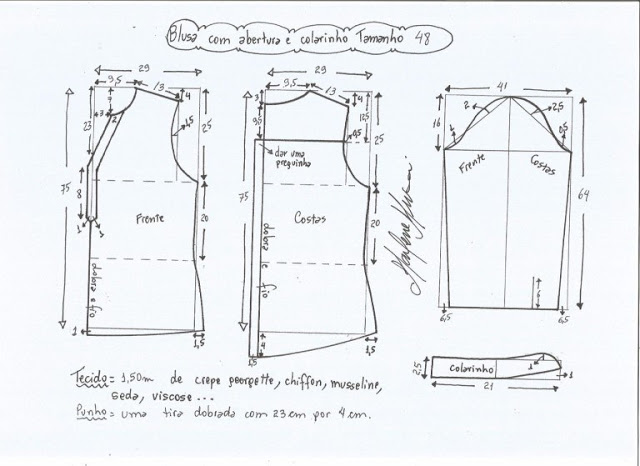 Blusa com abertura e colarinho Tamanho 48
29
9,5
13
4
3
2
23
1,5
25
8
75
1
1
Frente
20
dobra e fio
1
1,5
29
9,5
13
4
3
9,5
12,5
0,5
25
dar uma
preguinha
75
Costas
20
dobra e fio
4
1,5
1,5
41
16
2
2,5
1
0,5
Frente
Costas
64
6
6,5
6,5
2,5
colarinho
1
1
21
Tecido = 1,50m de crepe georgette, chiffon, musseline,
seda, viscose ...
Punho = uma tira dobrada com 23 cm por 4 cm.